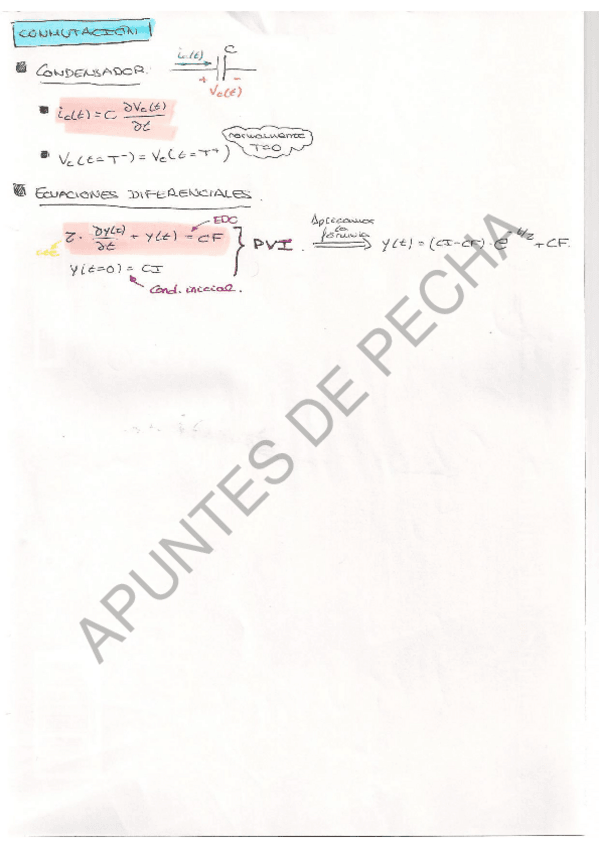 CONMUTACIÓN
CONDENSADOR:
ic(t)
C
+ -
Vc(t)
ic(t) = C ∂Vc(t)/∂t
Vc(t=T⁻) = Vc(t=T⁺)
normalmente
T=0
ECUACIONES DIFERENCIALES.
EDC
τ · ∂y(t)/∂t + y(t) = CF
y(t=0) = CI
Cond. inicial.
PVI.
Aplicamos
la
fórmula
y(t) = (CI-CF) · e^(-t/τ) + CF.
APUNTES DE PECHA